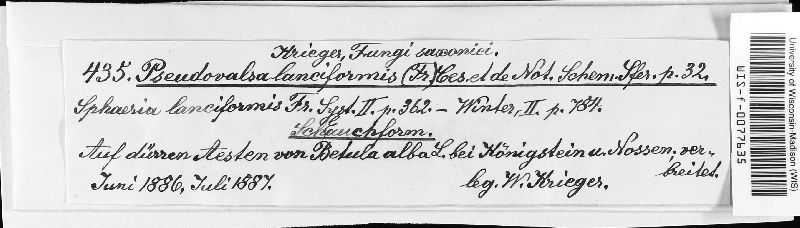 Krieger, Fungi saxonici.
435. Pseudovalsa lanciformis (Fr.) Ces. et de Not. Schem. Sfer. p. 32.
Sphaeria lanciformis Fr. Syst. II. p. 362. – Winter, II. p. 784.
Schlauchform.
Auf dürren Aesten von Betula alba L. bei Königstein u. Nossen, ver-
breitet.
Juni 1886, Juli 1887. leg. W. Krieger.
University of Wisconsin-Madison (WIS)
WIS-f-0077635